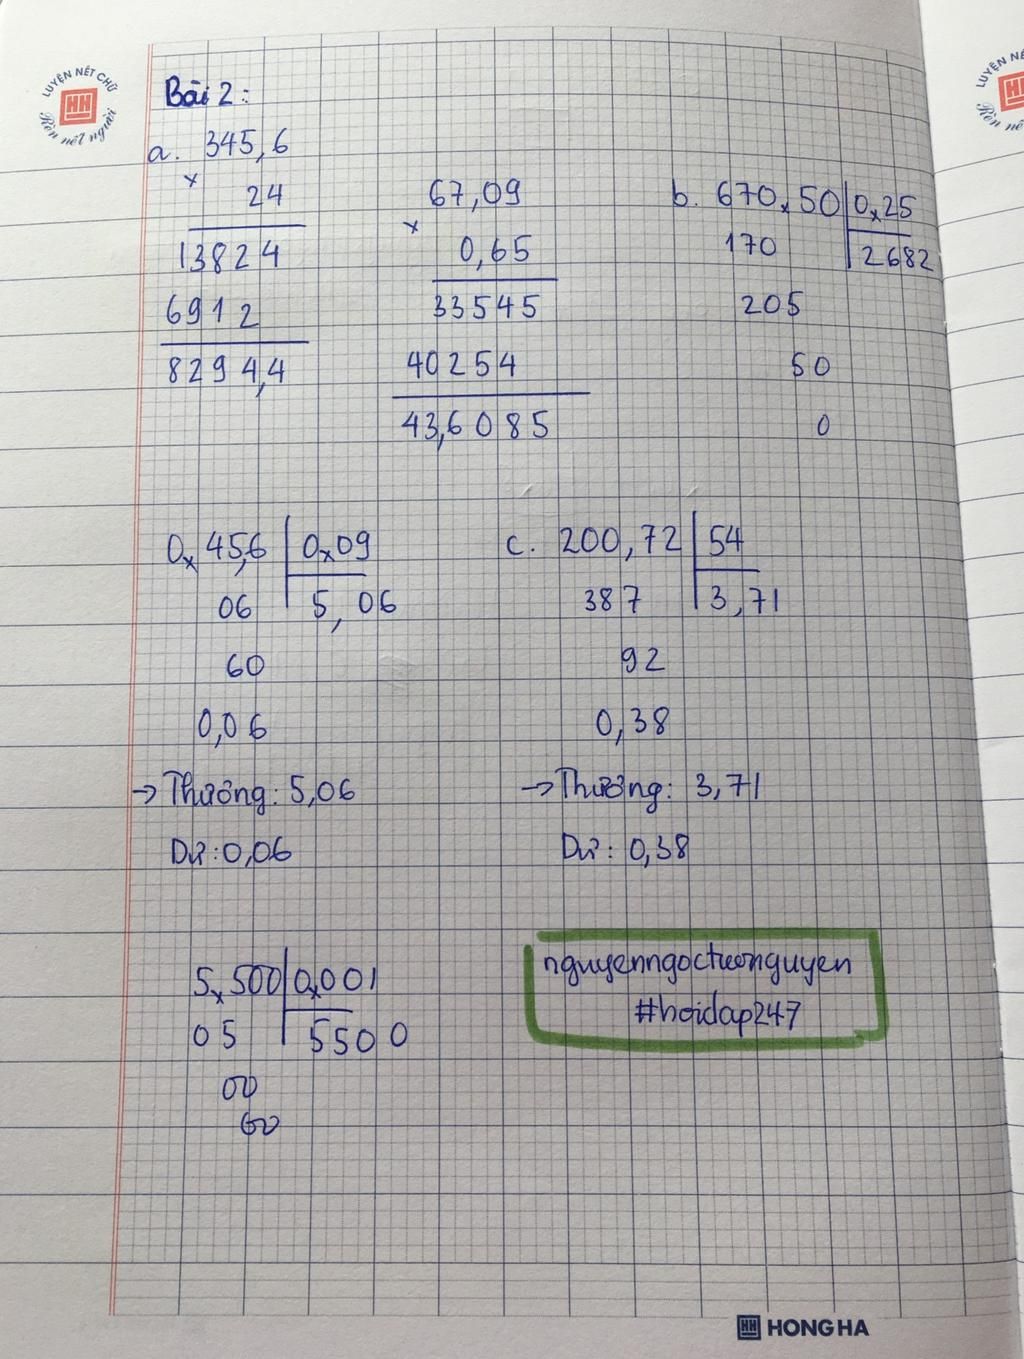 LUYỆN NÉT CHỮ
HH
Rèn nết người
LUYỆN NÉ
Rèn nế
Bài 2:
a. 345,6
x 24
13824
6912
8294,4
67,09
x 0,65
33545
40254
43,6085
b. 670x50 0x25
170 2682
205
50
0
0x45,6 0x09
06 5,06
60
0,06
→ Thương: 5,06
Dư: 0,06
c. 200,72 54
387 3,71
92
0,38
→ Thương: 3,71
Dư: 0,38
5x500 0x001
05 5500
00
00
nguyenngoctuonguyen
#hoidap247
HH HONG HA